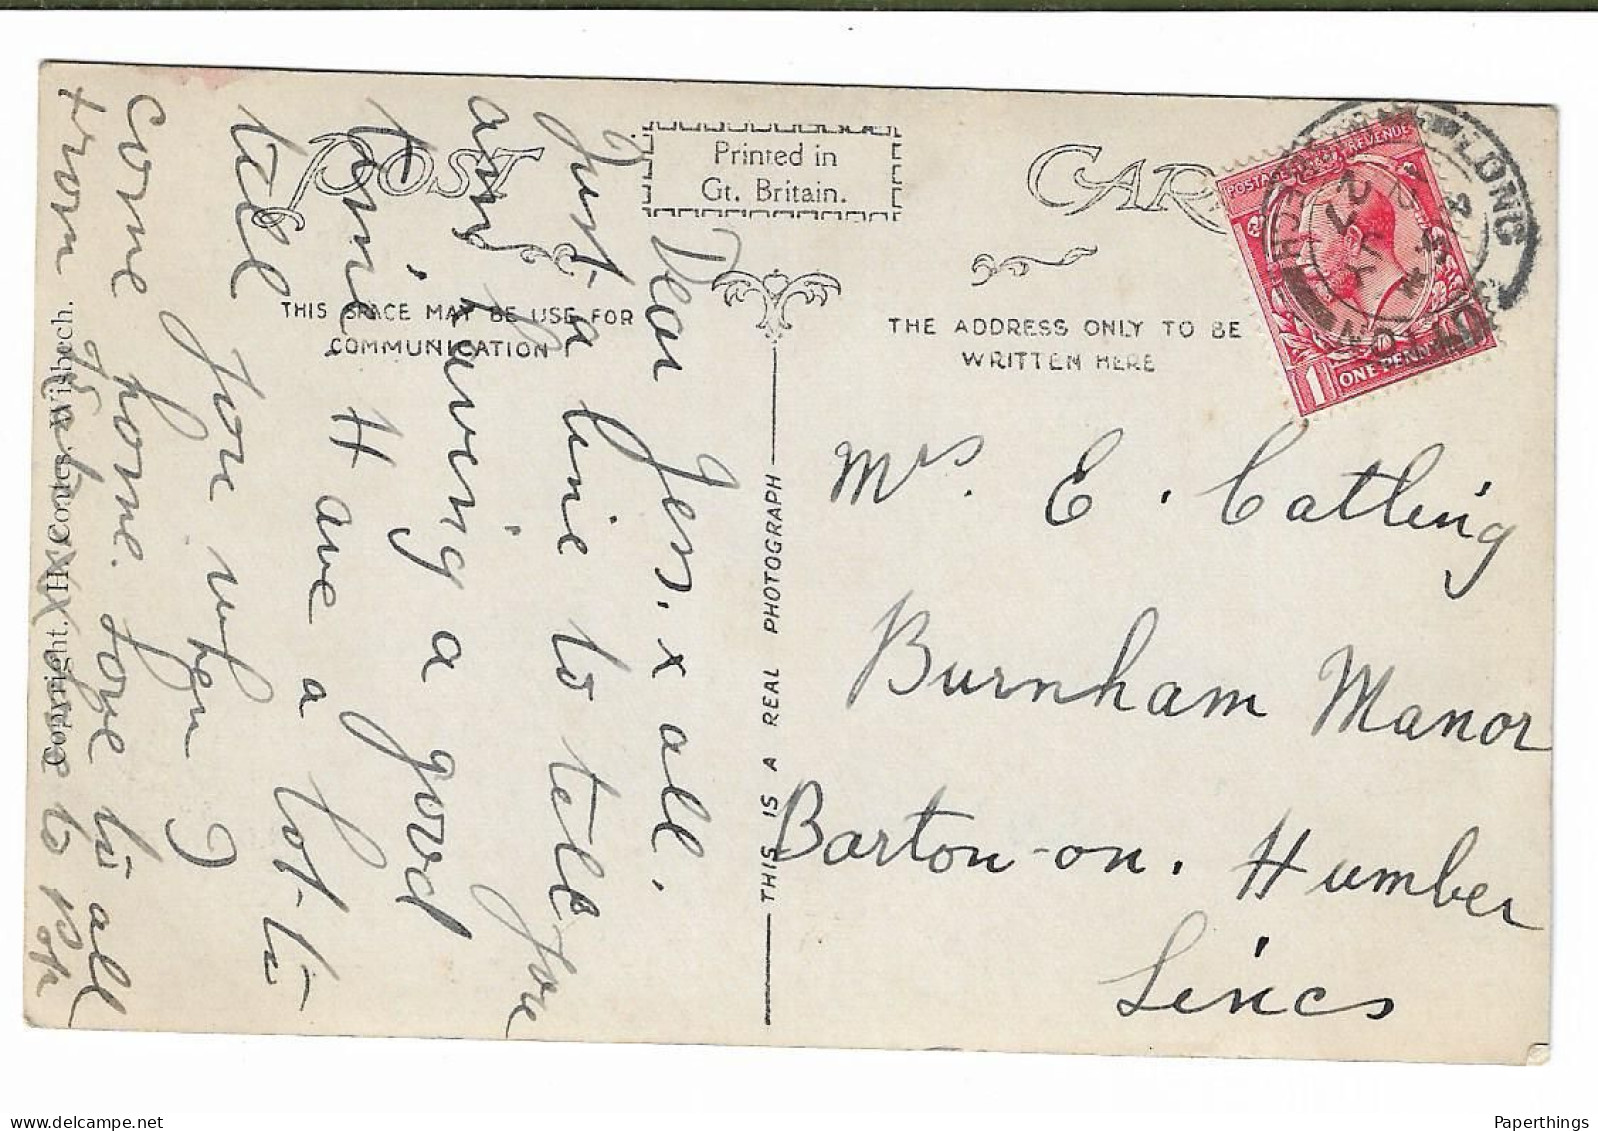 POST CARD
Printed in
Gt. Britain.
THIS SPACE MAY BE USE FOR
COMMUNICATION
THE ADDRESS ONLY TO BE
WRITTEN HERE
THIS IS A REAL PHOTOGRAPH
Copyright. H. Coates. Wisbech.
Dear Jess. x all.
Just a line to tell you
am having a good
time. Have a lot to
tell you when I
come home. Love to all
from
Mrs. E. Catling
Burnham Manor
Barton-on. Humber
Lincs
POSTAGE REVENUE
1 ONE PENNY 1
LONG
SUTTON
Paperthings